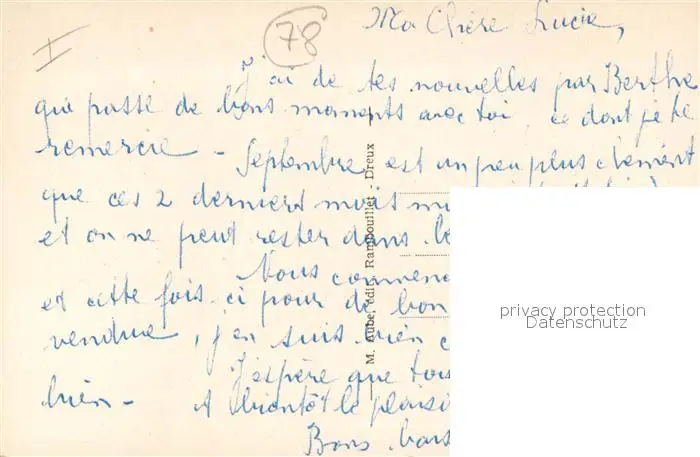 I
78
Ma Chère Lucie,
J'ai de tes nouvelles par Berthe
qui passe de bons moments avec toi, ce dont je te
remercie - Septembre est un peu plus clément
que ces 2 derniers mois
et on ne peut rester dans
Nous
et cette fois-ci pour de bon
vendue, j'en suis bien
J'espère que
bien - A bientôt le
Bons
M. Aubé, édit., Rambouillet - Dreux
privacy protection
Datenschutz